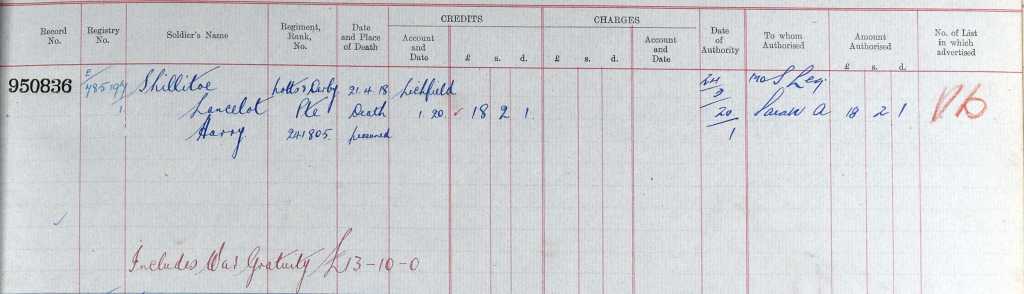 CREDITS CHARGES
Record No. Registry No. Soldier's Name Regiment, Rank, No. Date and Place of Death Account and Date £ s. d. £ s. d. Account and Date Date of Authority To whom Authorised Amount Authorised £ s. d. No. of List in which advertised
950836 E Shillitoe Notts & Derby 21.4.18 Lichfield 24 Mo S Leg
1 Lancelot Pte Death 1.20 18 2 1 9 20 Sarah A 18 2 1
Harry 241805 presumed 1
Includes War Gratuity £13-10-0